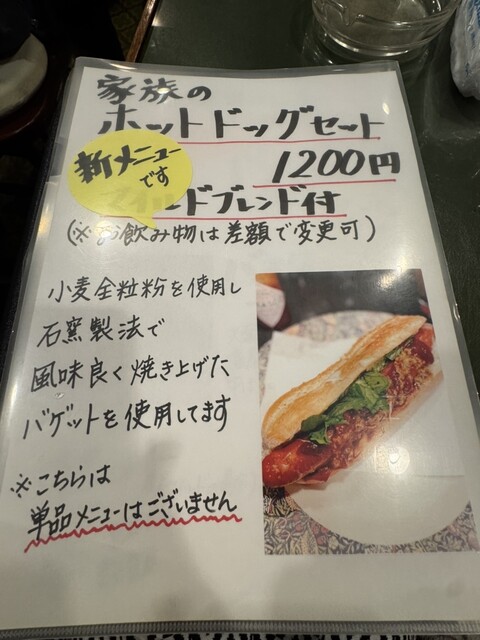 家族の
ホットドッグセット
新メニュー
です
1200円
マイルドブレンド付
(※お飲み物は差額で変更可)
小麦全粒粉を使用し
石窯製法で
風味良く焼き上げた
バゲットを使用してます
※こちらは
単品メニューはございません